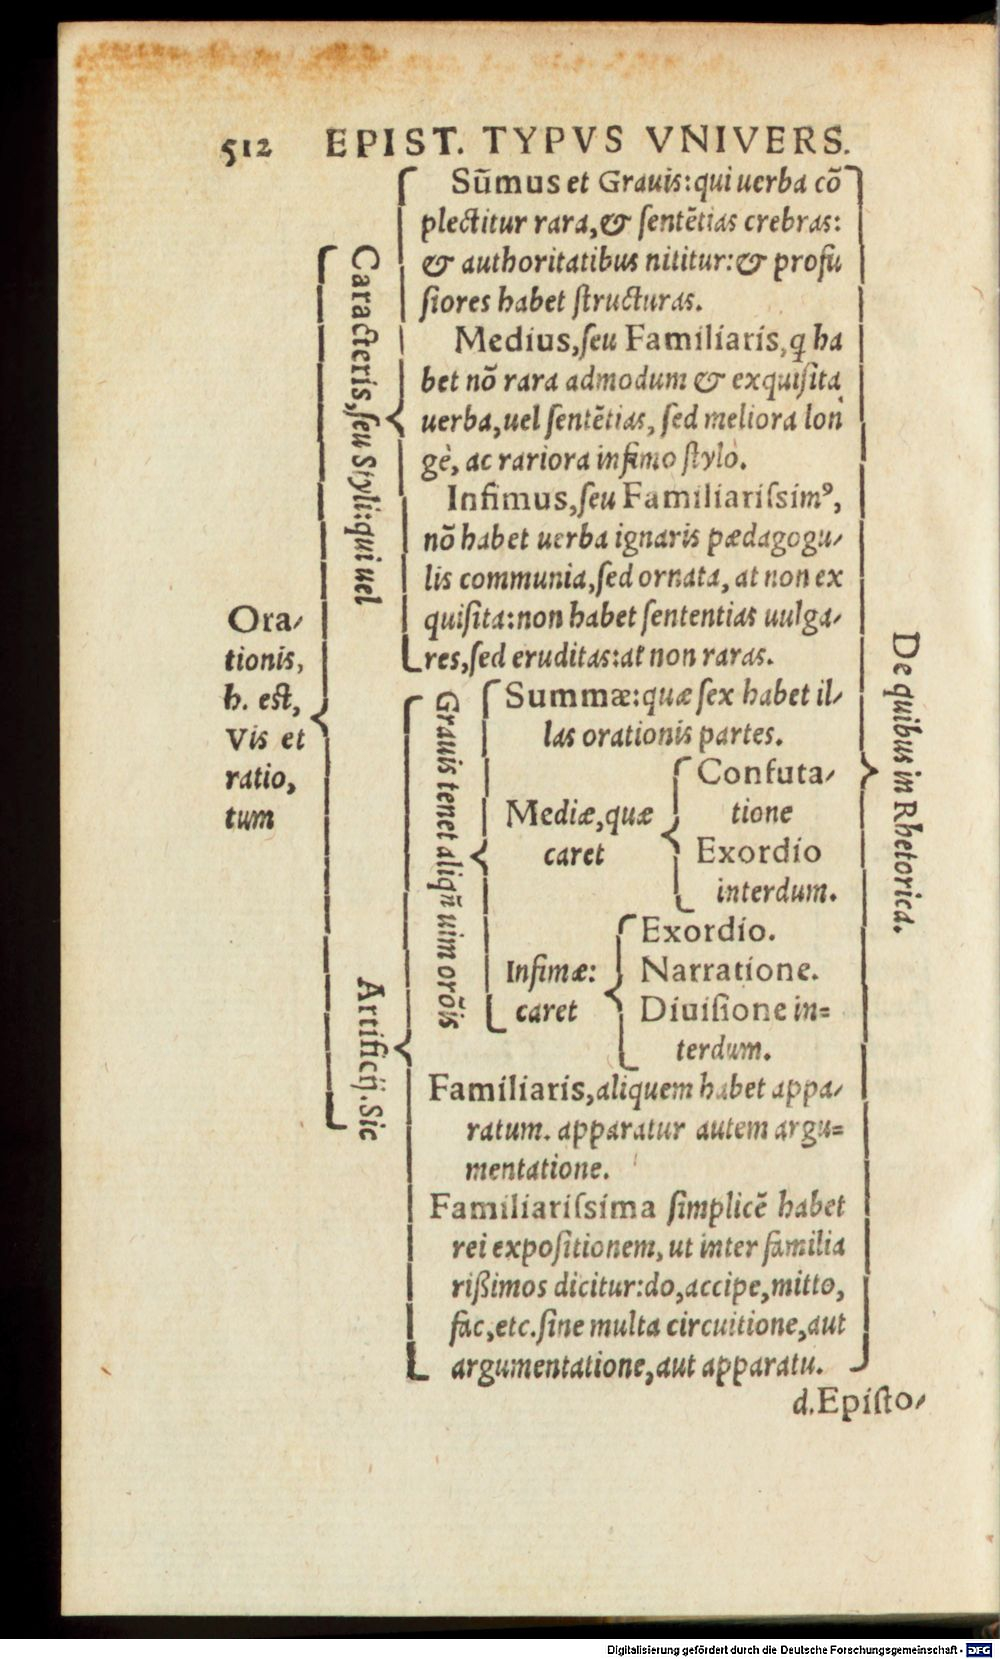 512 EPIST. TYPVS VNIVERS.
Ora⸗
tionis,
h. est,
Vis et
ratio,
tum
Caracteris, ſeu Styli: qui uel
Sūmus et Grauis: qui uerba cō
plectitur rara, & ſentētias crebras:
& authoritatibus nititur: & profu
ſiores habet ſtructuras.
Medius, ſeu Familiaris, q̃ ha
bet nō rara admodum & exquiſita
uerba, uel ſentētias, ſed meliora lon
gè, ac rariora infimo ſtylo.
Infimus, ſeu Familiariſsimꝰ,
nō habet uerba ignaris pædagogu⸗
lis communia, ſed ornata, at non ex
quiſita: non habet ſententias uulga⸗
res, ſed eruditas: at non raras.
Artificij. Sic
Grauis tenet aliqū uim orōis
Summæ: quæ ſex habet il⸗
las orationis partes.
Mediæ, quæ
caret
Confuta⸗
tione
Exordio
interdum.
Infimæ:
caret
Exordio.
Narratione.
Diuiſione in=
terdum.
Familiaris, aliquem habet appa⸗
ratum. apparatur autem argu=
mentatione.
Familiariſsima ſimplicē habet
rei expoſitionem, ut inter familia
rißimos dicitur: do, accipe, mitto,
fac, etc. ſine multa circuitione, aut
argumentatione, aut apparatu.
De quibus in Rhetorica.
d. Epiſto⸗
Digitalisierung gefördert durch die Deutsche Forschungsgemeinschaft - DFG